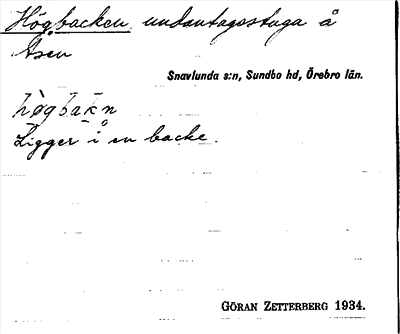 Högbacken, undantagsstuga å
Åsen
Snavlunda s:n, Sundbo hd, Örebro län.
hö̀gbakn̥
Ligger i en backe.
GÖRAN ZETTERBERG 1934.